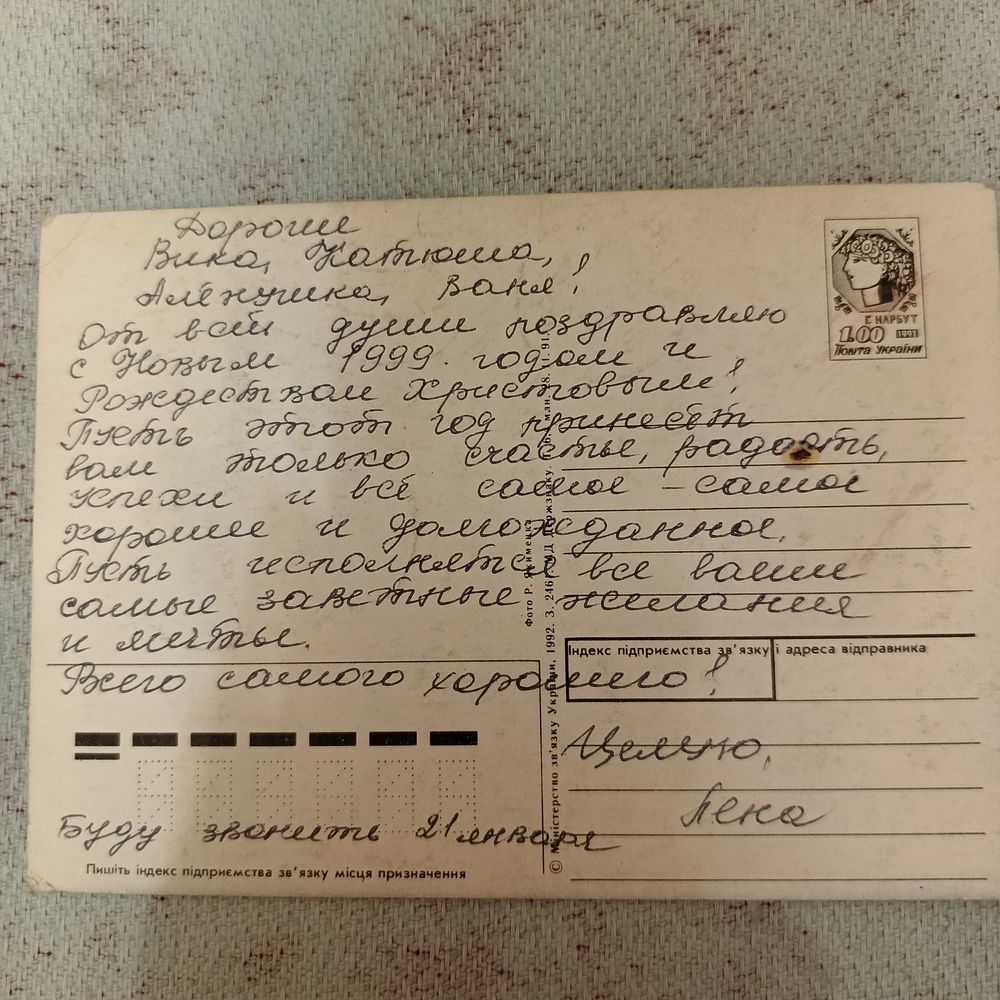 Дорогие
Вика, Катюша,
Алёнушка, Ваня!
От всей души поздравляю
с Новым 1999 годом и
Рождеством Христовым!
Пусть этот год принесёт
вам только счастье, радость,
успехи и всё самое-самое
хорошее и долгожданное.
Пусть исполнятся все ваши
самые заветные желания
и мечты.
Всего самого хорошего!
Целую,
Лена
Буду звонить 21 января
Г. НАРБУТ
1.00 1992
Пошта України
Індекс підприємства зв'язку і адреса відправника
Пишіть індекс підприємства зв'язку місця призначення
Фото Р. Якименка
© Міністерство зв'язку України, 1992. З. 246